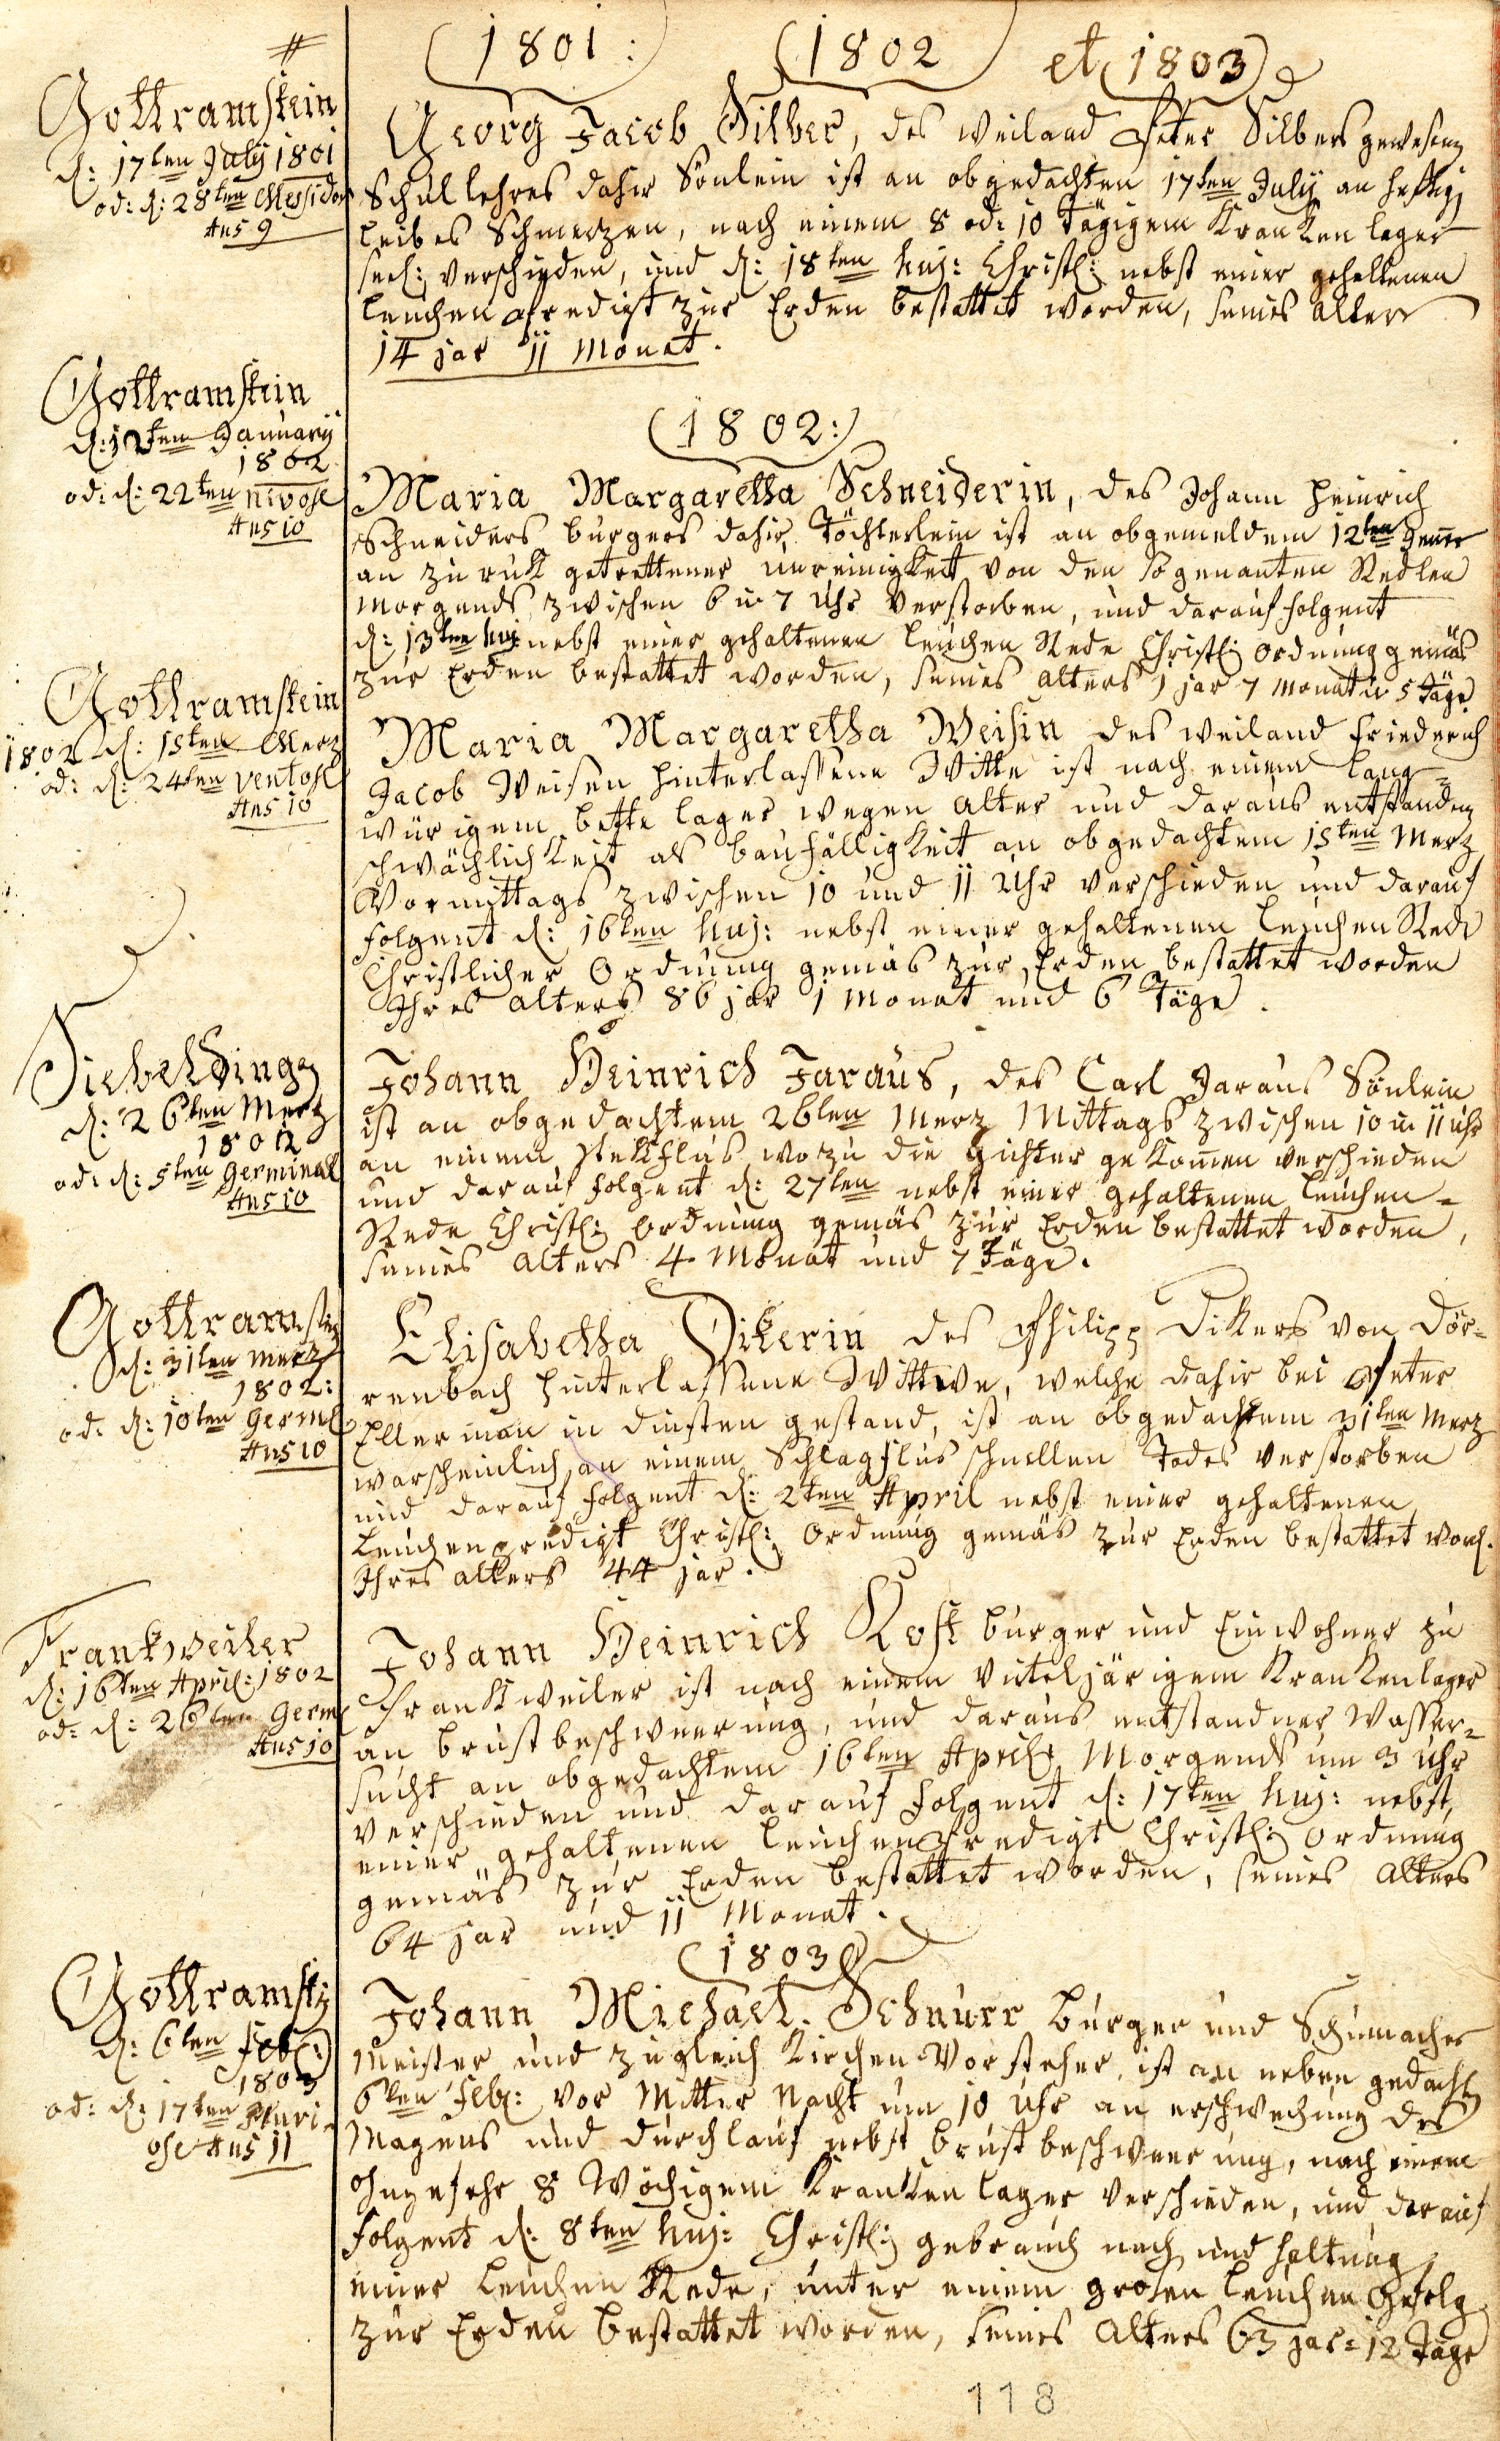 1801: 1802 et 1803
#
Gottramstein
d: 17ten July 1801
od: d: 28ten Messidor
Ans 9
Georg Jacob Silber, des weiland Peter Silbers gewesenen
Schullehrers dahir Sönlein ist an obgedachten 17ten July an heftig
leibes Schmerzen, nach einem 8 od: 10 Tägigem Kranken lager
seel: verschieden, und d: 18ten huj: Christl: nebst einer gehaltenen
leuchen Predigt zur Erden bestattet worden, seines alters
14 jar 11 Monat.
(1802:)
Gottramstein
d: 12ten January
1802
od: d: 22ten nivose
Ans 10
Maria Margaretha Schneiderin, des Johann Heinrich
Schneiders burgers dahir Töchterlein ist an obgemeldem 12ten Jener
an zu ruk getrettener unreinigkeit von den so genanten Redlen
Morgends zwischen 6 u 7 Uhr verstorben, und darauf folgent
d: 13ten huj: nebst einer gehaltenen leuchen Rede Christl: ordnung gemäs
zur Erden bestattet worden, seines alters 1 jar 7 Monat u 5 Täge
Gottramstein
1802 d: 15ten Merz
od: d: 24ten ventose
Ans 10
Maria Margaretha Weisin des weiland Friederich
Jacob Weisen hinterlassene Witte ist nach einem lang=
würigem bette lager wegen alter und daraus entstanden
schwächlichkeit als baufälligkeit an obgedachtem 15ten Merz
Vormittags zwischen 10 und 11 Uhr verschieden und darauf
folgent d: 16ten huj: nebst einer gehaltenen leuchen Rede
Christlicher Ordnung gemäs zur Erden bestattet worden
Ihres alters 86 jar 1 Monat und 6 Täge.
Siebeldingen
d: 26ten Merz
1802
od: d: 5ten Germinal
Ans 10
Johann Heinrich Faraus, des Carl Faraus Sönlein
ist an obgedachtem 26ten Merz Mittags zwischen 10 u 11 uhr
an einem stekflus wozu die gichter gekomen verschieden
und darauf folgent d: 27ten nebst einer gehaltenen leuchen=
Rede Christl: ordnung gemäs zur Erden bestattet worden,
seines alters 4 Monat und 7 Täge.
Gottramstein
d: 31ten Merz
1802:
od: d: 10ten Germl
Ans 10
Elisabetha Dikerin des Philipp Dikers von Dör=
renbach hinterlassene Wittwe, welche dahir bei Peter
Ellerman in dinsten gestand, ist an obgedachtem 31ten Merz
warscheinlich an einem Schlagflus schnellen Todes verstorben
und darauf folgent d: 2ten April nebst einer gehaltenen
leuchenpredigt Christl: ordnung gemäs zur Erden bestattet word.
Ihres alters 44 jar.
Frankweiler
d: 16ten April: 1802
od: d: 26ten Germ
Ans 10
Johann Heinrich Kost burger und Einwohner zu
Frankweiler ist nach einem viteljärigem Krankenlager
an brustbeschweerung, und daraus entstandner Wasser=
sucht an obgedachtem 16ten April Morgends um 3 Uhr
verschieden und darauf folgent d: 17ten huj: nebst
einer gehaltenen leuchen Predigt Christl: ordnung
gemäs zur Erden bestattet worden, seines alters
64 jar und 11 Monat.
(1803)
Gottramstein
d: 6ten Febr:
1803
od: d: 17ten Pluvi-
ose Ans 11
Johann Michael Schnurr burger und Schumacher
Meister und zugleich Kirchen Vorsteher ist an neben gedacht
6ten Febr: vor Mitter Nacht um 10 Uhr an erschwechung des
Magens und durchlauf nebst brustbeschweerung, nach einem
ohngefehr 8 Wöchigem Kranken lager verschieden, und darauf
folgent d: 8ten huj: Christl: gebrauch nach und haltung
einer leuchen Rede, unter einem grosen leuchen Gefolg
zur Erden bestattet worden, seines alters 63 jar: 12 Täge
118